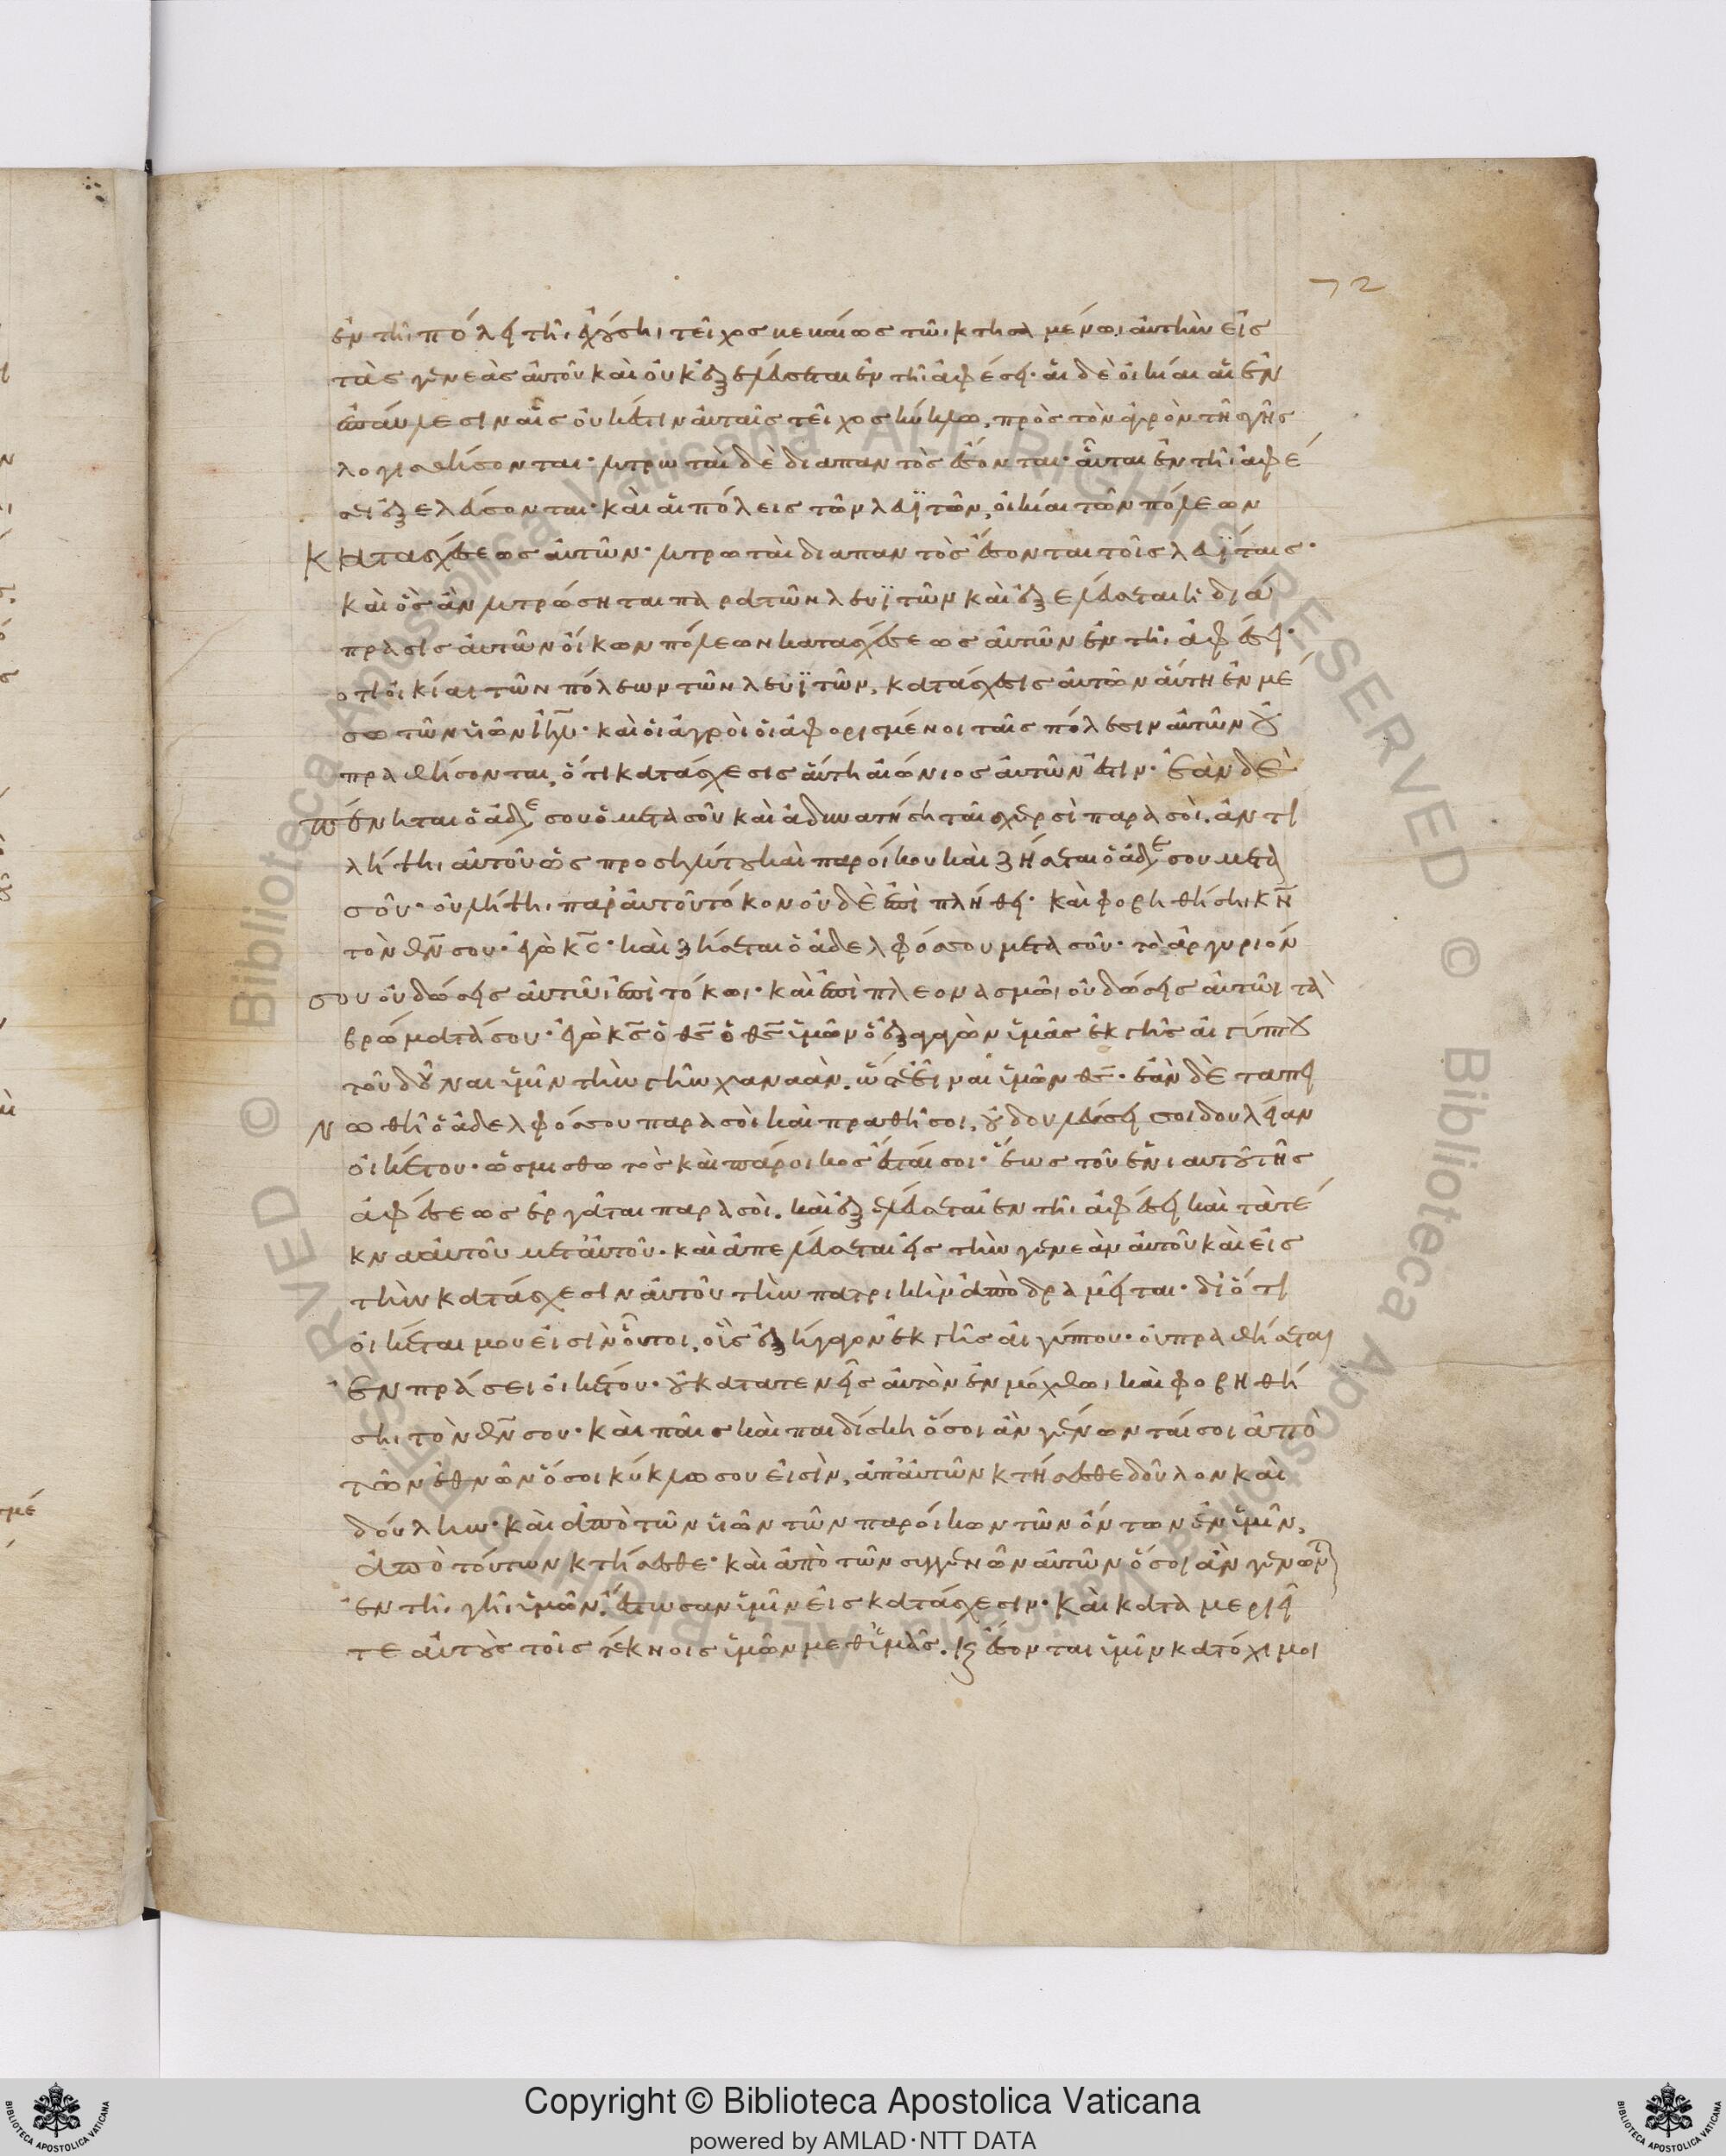 72
ἐν τῆι πόλει τῆι ἐχούσηι τεῖχος βεβαίως τῶι κτησαμένωι αὐτὴν εἰς
τὰς γενεὰς αὐτοῦ καὶ οὐκ ἐξελεύσεται ἐν τῆι ἀφέσει· αἱ δὲ οἰκίαι αἱ ἐν
ἐπαύλεσιν αἷς οὐκ ἔστιν αὐταῖς τεῖχος κύκλω, πρὸς τὸν ἀγρὸν τῆς γῆς
λογισθήσονται· λυτρωταὶ δὲ διαπαντὸς ἔσονται· αὗται ἐν τῆι ἀφέ
σει ἐξελεύσονται· καὶ αἱ πόλεις τῶν λευϊτῶν, οἰκίαι τῶν πόλεων
κατασχέσεως αὐτῶν· λυτρωταὶ διαπαντὸς ἔσονται τοῖς λευΐταις·
καὶ ὃς ἂν λυτρώσηται παρὰ τῶν λευϊτῶν καὶ ἐξελεύσεται ἡ διά
πρασις αὐτῶν οἴκων πόλεων κατασχέσεως αὐτῶν ἐν τῆι ἀφέσει·
ὅτι οἰκίαι τῶν πόλεων τῶν λευϊτῶν, κατάσχεσις αὐτῶν αὕτη ἐν μέ
σω τῶν υἱῶν ι̅η̅λ̅· καὶ οἱ ἀγροὶ οἱ ἀφορισμένοι ταῖς πόλεσιν αὐτῶν οὐ
πραθήσονται, ὅτι κατάσχεσις αὕτη αἰώνιος αὐτῶν ἐστιν· ἐὰν δὲ
πένηται ὁ ἀδελφός σου ὁ μετὰ σοῦ καὶ ἀδυνατήση ταῖς χερσὶ παρὰ σοὶ. ἀντι
λήψηι αὐτοῦ ὡς προσηλύτου καὶ παροίκου καὶ ζήσεται ὁ ἀδελφός σου μετὰ
σοῦ· οὐ λήψηι παρ' αὐτοῦ τόκον οὐδὲ ἐπὶ πλήθει· καὶ φοβηθήσηι
τὸν θ̅ν̅ σου· ἐγὼ κ̅ς̅· καὶ ζήσεται ὁ ἀδελφός σου μετὰ σοῦ· τὸ ἀργύριόν
σου οὐ δώσεις αὐτῶι ἐπὶ τόκωι· καὶ ἐπὶ πλεονασμῶι οὐ δώσεις αὐτῶι τὰ
βρώματά σου· ἐγὼ κ̅ς̅ ὁ θ̅ς̅ ὁ θ̅ς̅ ὑμῶν ὁ ἐξαγαγὼν ὑμᾶς ἐκ γῆς αἰγύπτου
τοῦ δοῦναι ὑμῖν τὴν γῆν χαναὰν. ὥστε εἶναι ὑμῶν θ̅ς̅· ἐὰν δὲ ταπει
νωθῆ ὁ ἀδελφός σου παρὰ σοὶ καὶ πραθῆ σοι, οὐ δουλεύσει σοι δουλείαν
οἰκέτου· ὡς μισθωτὸς καὶ πάροικος ἔσται σοι· ἕως τοῦ ἐνιαυτοῦ τῆς
ἀφέσεως ἐργᾶται παρὰ σοὶ. καὶ ἐξελεύσεται ἐν τῆι ἀφέσει καὶ τὰ τέ
κνα αὐτοῦ μετ' αὐτοῦ· καὶ ἀπελεύσεται εἰς τὴν γενεὰν αὐτοῦ καὶ εἰς
τὴν κατάσχεσιν αὐτοῦ τὴν πατρικὴν ἀποδραμεῖται· διότι
οἰκέται μου εἰσὶν οὗτοι, οὓς ἐξήγαγον ἐκ γῆς αἰγύπτου· οὐ πραθήσεται
ἐν πράσει οἰκέτου· οὐ κατατενεῖς αὐτὸν ἐν μόχθωι καὶ φοβηθή
σηι τὸν θ̅ν̅ σου· καὶ παῖς καὶ παιδίσκη ὅσοι ἂν γένωνταί σοι ἀπὸ
τῶν ἐθνῶν ὅσοι κύκλω σου εἰσὶν, ἀπ' αὐτῶν κτήσεσθε δοῦλον καὶ
δούλην· καὶ ἀπὸ τῶν υἱῶν τῶν παροίκων τῶν ὄντων ἐν ὑμῖν,
ἀπὸ τούτων κτήσεσθε· καὶ ἀπὸ τῶν συγγενῶν αὐτῶν ὅσοι ἂν γένωνται
ἐν τῆι γῆι ὑμῶν. ἔστωσαν ὑμῖν εἰς κατάσχεσιν· καὶ καταμεριεῖ
τε αὐτοὺς τοῖς τέκνοις ὑμῶν μεθ' ὑμᾶς. καὶ ἔσονται ὑμῖν κατόχιμοι
Copyright © Biblioteca Apostolica Vaticana
powered by AMLAD·NTT DATA